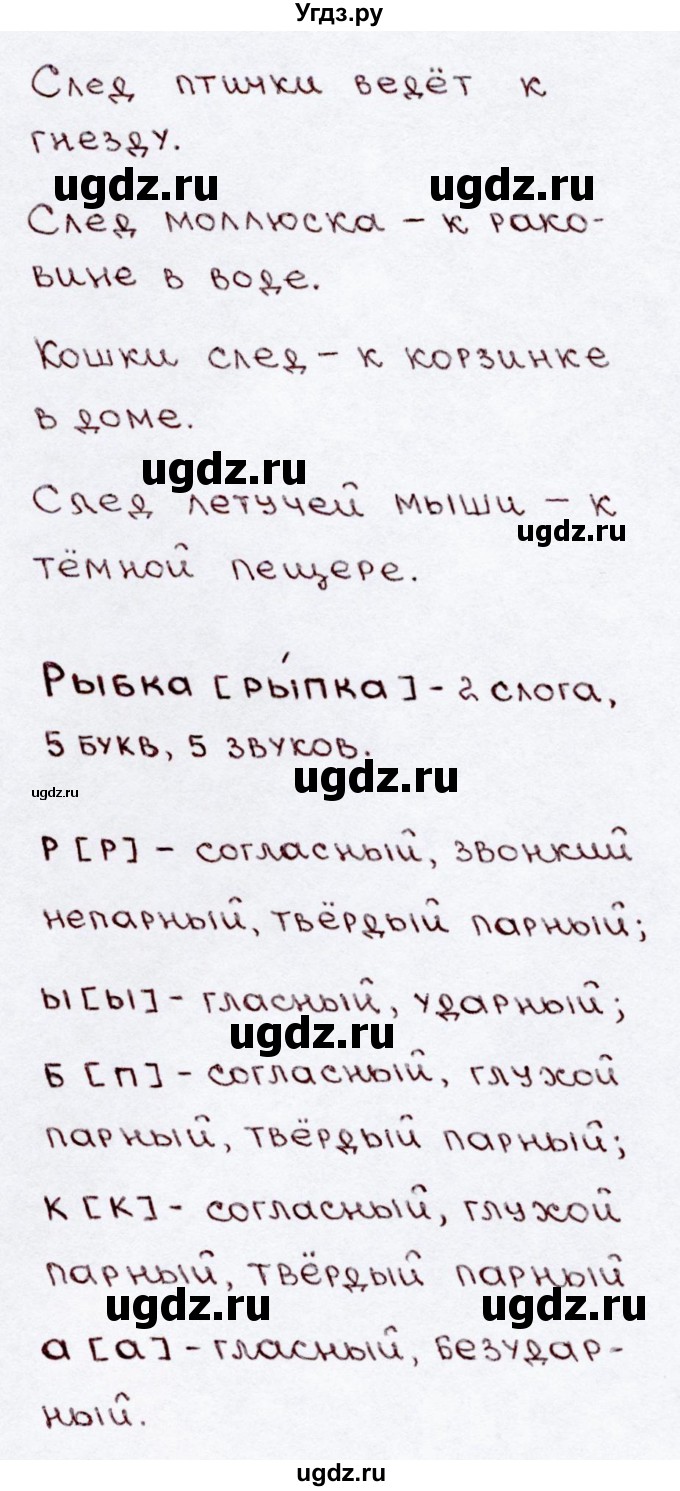 Угдз.ру
След птички ведёт к
гнезду.
ugdz.ru ugdz.ru
След моллюска – к рако-
вине в воде.
Кошки след – к корзинке
в доме.
ugdz.ru
След летучей мыши – к
ugdz.ru
тёмной пещере.
Рыбка [ры́пка] - 2 слога,
5 букв, 5 звуков.
ugdz.ru
ugdz.ru
Р [р] – согласный, звонкий
непарный, твёрдый парный;
ы [ы] - гласный, ударный;
ugdz.ru
Б [п] - согласный, глухой
парный, твёрдый парный;
к [к] - согласный, глухой
парный, твёрдый парный
ugdz.ru ugdz.ru
а [а] - гласный, безудар-
ный.
ugdz.ru